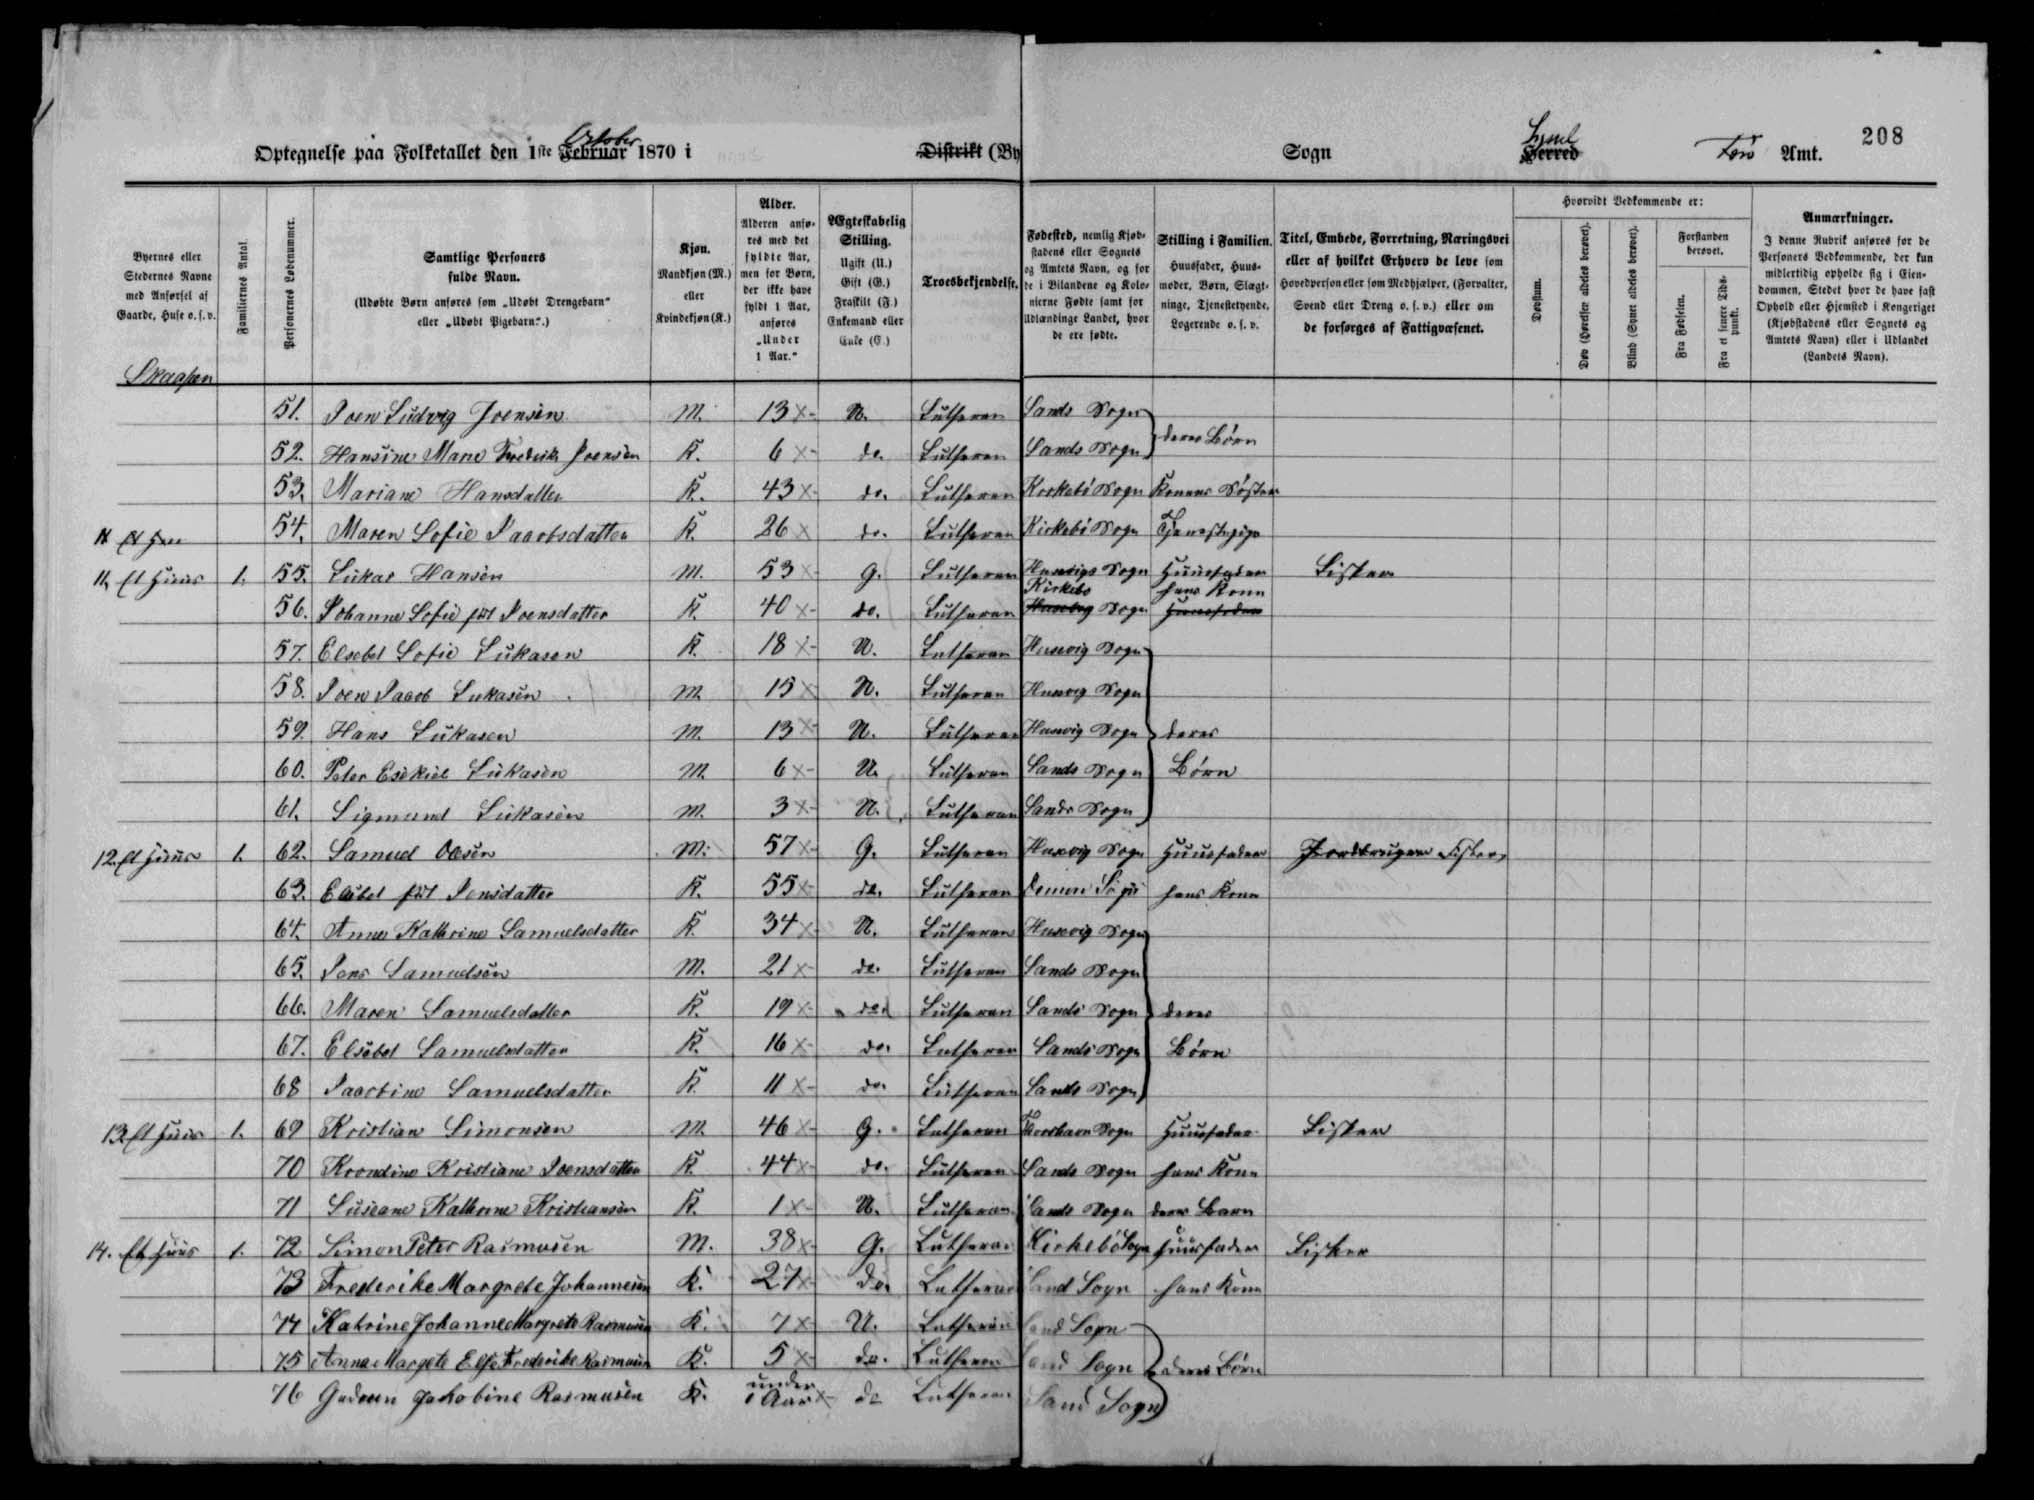 Optegnelse paa Folketallet den 1ste October Februar 1870 i Distrikt (By Sogn Syssel Herred Færø Amt. 208
Byernes eller Stedernes Navne med Anførsel af Gaarde, Huse o. s. v.
Familiernes Antal.
Personernes Løbenummer.
Samtlige Personers fulde Navn.
(Udøbte Børn anføres som „Udøbt Drengebarn“ eller „Udøbt Pigebarn“.)
Kjøn.
Mandkjøn (M.) eller Kvindekjøn (K.)
Alder.
Alderen anføres med det fyldte Aar, men for Børn, der ikke have fyldt 1 Aar, anføres „Under 1 Aar.“
Ægteskabelig Stilling.
Ugift (U.) Gift (G.) Fraskilt (F.) Enkemand eller Enke (E.)
Troesbekjendelse.
Fødested, nemlig Kjøbstadens eller Sognets og Amtets Navn, og for de i Bilandene og Kolonierne Fødte samt for Udlændinge Landet, hvor de ere fødte.
Stilling i Familien.
Huusfader, Huusmoder, Børn, Slægtninge, Tjenestetyende, Logerende o. s. v.
Titel, Embede, Forretning, Næringsvei eller af hvilket Erhverv de leve som Hovedperson eller som Medhjælper, (Forvalter, Svend eller Dreng o. s. v.) eller om de forsørges af Fattigvæsenet.
Hvorvidt Vedkommende er:
Døvstum.
Døv (Hørelsen aldeles berøvet).
Blind (Synet aldeles berøvet).
Forstanden berøvet.
Fra Fødselen.
Fra et senere Tidspunkt.
Anmærkninger.
I denne Rubrik anføres for de Personers Vedkommende, der kun midlertidig opholde sig i Eiendommen, Stedet hvor de have fast Ophold eller Hjemsted i Kongeriget (Kjøbstadens eller Sognets og Amtets Navn) eller i Udlandet (Landets Navn).
51. Joen Ludvig Joensen M. 13 x- U. Lutheran Sands Sogn
52. Hansine Marie Frederik Joensen K. 6 x- do. Lutheran Sands Sogn deres Børn
53. Mariane Hansdatter K. 43 x- do. Lutheran Kirkebö Sogn Konens Söster
54. Maren Sofie Jacobsdatter K. 26 x do. Lutheran Kirkebö Sogn Tjenestepige
11. et Huus 1. 55. Lukas Hansen M. 53 x- G. Lutheran Husevigs Sogn Huusfader Fisker
56. Johanne Sofie föd Joensdatter K. 40 x- do. Lutheran Kirkebö Husevig Sogn hans Kone Huusfader
57. Elsebet Sofie Lukasen K. 18 x- U. Lutheran Husevig Sogn
58. Joen Jacob Lukasen M. 15 x U. Lutheran Husevig Sogn
59. Hans Lukasen M. 13 x- U. Lutheran Husevig Sogn deres
60. Peter Esekiel Lukasen M. 6 x- U. Lutheran Sands Sogn Börn
61. Sigmund Lukasen M. 3 x- U. Lutheran Sands Sogn
12. et Huus 1. 62. Samuel Olesen M. 57 x- G. Lutheran Husevig Sogn Huusfader Jordbruger Fisker
63. Elsebet föd Jensdatter K. 55 x- do. Lutheran hans Kone
64. Anna Kathrine Samuelsdatter K. 34 x- U. Lutheran Husevig Sogn
65. Jens Samuelsen M. 21 x- do. Lutheran Sands Sogn
66. Maren Samuelsdatter K. 19 x- do. Lutheran Sands Sogn deres
67. Elsebet Samuelsdatter K. 16 x- do. Lutheran Sands Sogn Börn
68 Jacobine Samuelsdatter K. 11 x- do. Lutheran Sands Sogn
13. et Huus 1. 69 Kristian Simonsen M. 46 x- G. Lutheran Thorshavn Sogn Huusfader Fisker
70 Kristiane Joensdatter K. 44 x- do. Lutheran Sands Sogn hans Kone
71 Suseane Kathrine Kristiansen K. 1 x- U. Lutheran Sands Sogn deres Barn
14. et Huus 1. 72 Simon Peter Rasmusen M. 38 x- G. Lutheran Kirkebö Sogn Huusfader Fisker
73 Frederike Margrete Johannesen K. 27 x- do. Lutheran Sand Sogn hans Kone
74 Katrine Johanne Margrete Rasmusen K. 7 x- U. Lutheran Sand Sogn
75 Anna Margete Else Frederike Rasmusen K. 5 x- do. Lutheran Sand Sogn deres Börn
76 Gudrun Jakobine Rasmusen K. under 1 Aar x- do Lutheran Sand Sogn